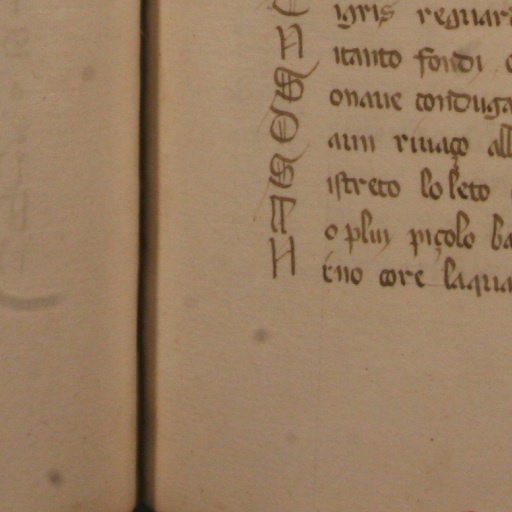 Tigris reguar
N itanto fondi
S onaue conduga
D aun riuaço all
S istreto lo leto
M o pluy piçolo ba
N eno core laqua